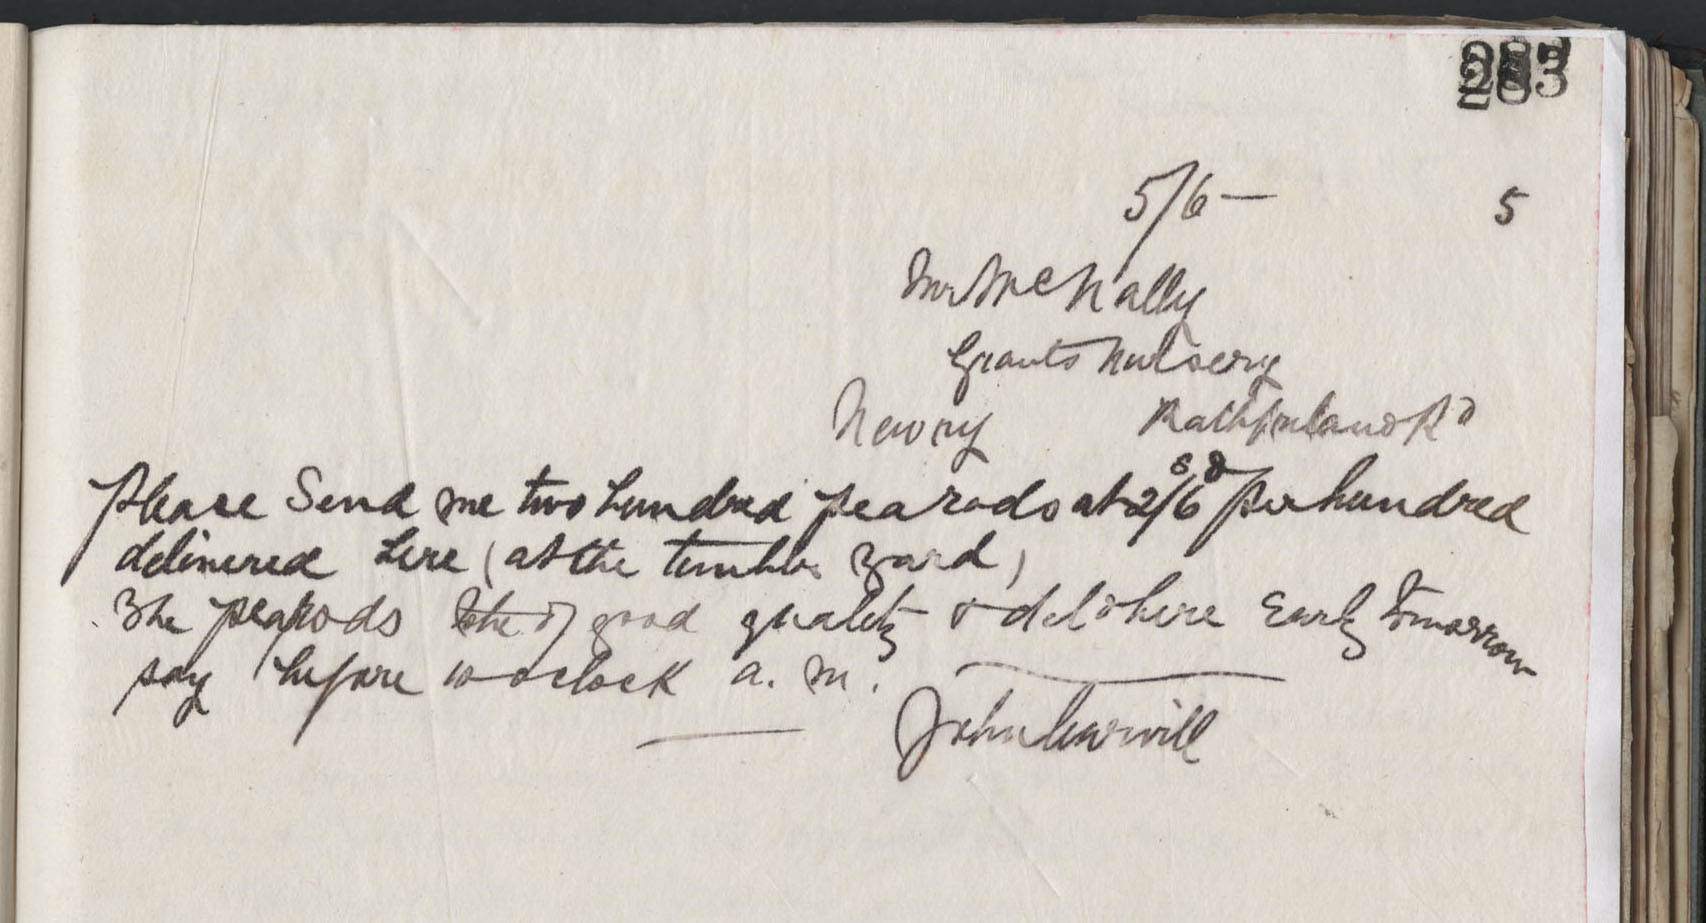 5/6 — 5
Mr McNally
Grants Nursery
Newry Rathfriland Rd
Please Send me two hundred pea rods at 2s/6d per hundred
delivered here (at the timber yard)
The pea rods to be of good quality & deld here Early tomorrow
say before 10 oclock a.m.
John Carvill